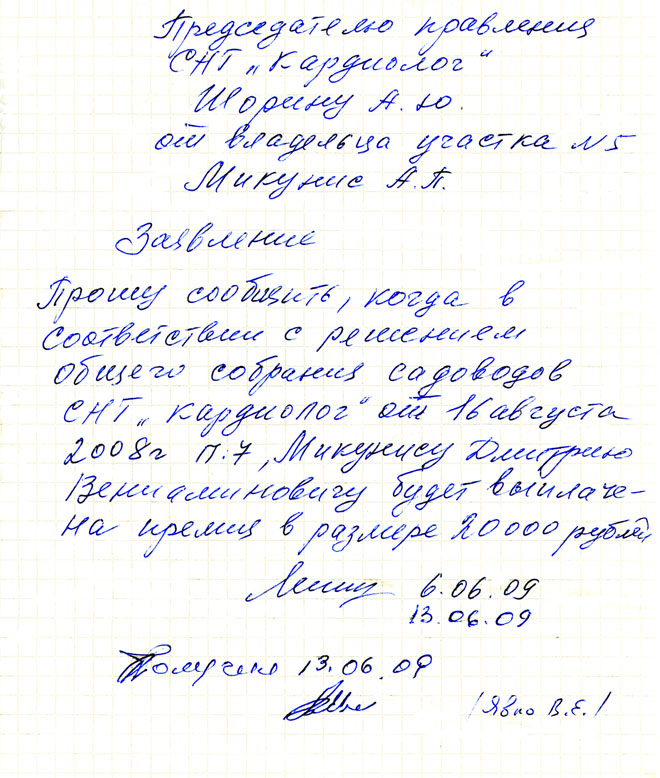 Председателю правления
СНТ „Кардиолог"
Шорину А.Ю.
от владельца участка N5
Микунис А.П.
Заявление
Прошу сообщить, когда в
соответствии с решением
общего собрания садоводов
СНТ „Кардиолог" от 16 августа
2008г п.7, Микунису Дмитрию
Вениаминовичу будет выплаче-
на премия в размере 20000 рублей
6.06.09
13.06.09
Получено 13.06.09
/Явно В.Е./